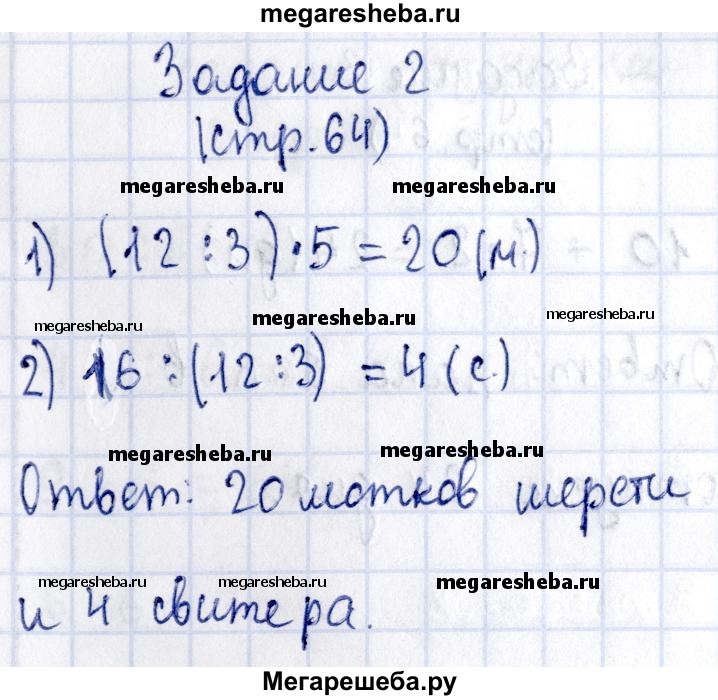 megaresheba.ru
Задание 2
(стр. 64)
megaresheba.ru megaresheba.ru
1) (12 : 3) · 5 = 20 (м.)
megaresheba.ru megaresheba.ru megaresheba.ru
2) 16 : (12 : 3) = 4 (с.)
megaresheba.ru megaresheba.ru
Ответ: 20 мотков шерсти
megaresheba.ru megaresheba.ru megaresheba.ru
и 4 свитера.
Мегарешеба.ру